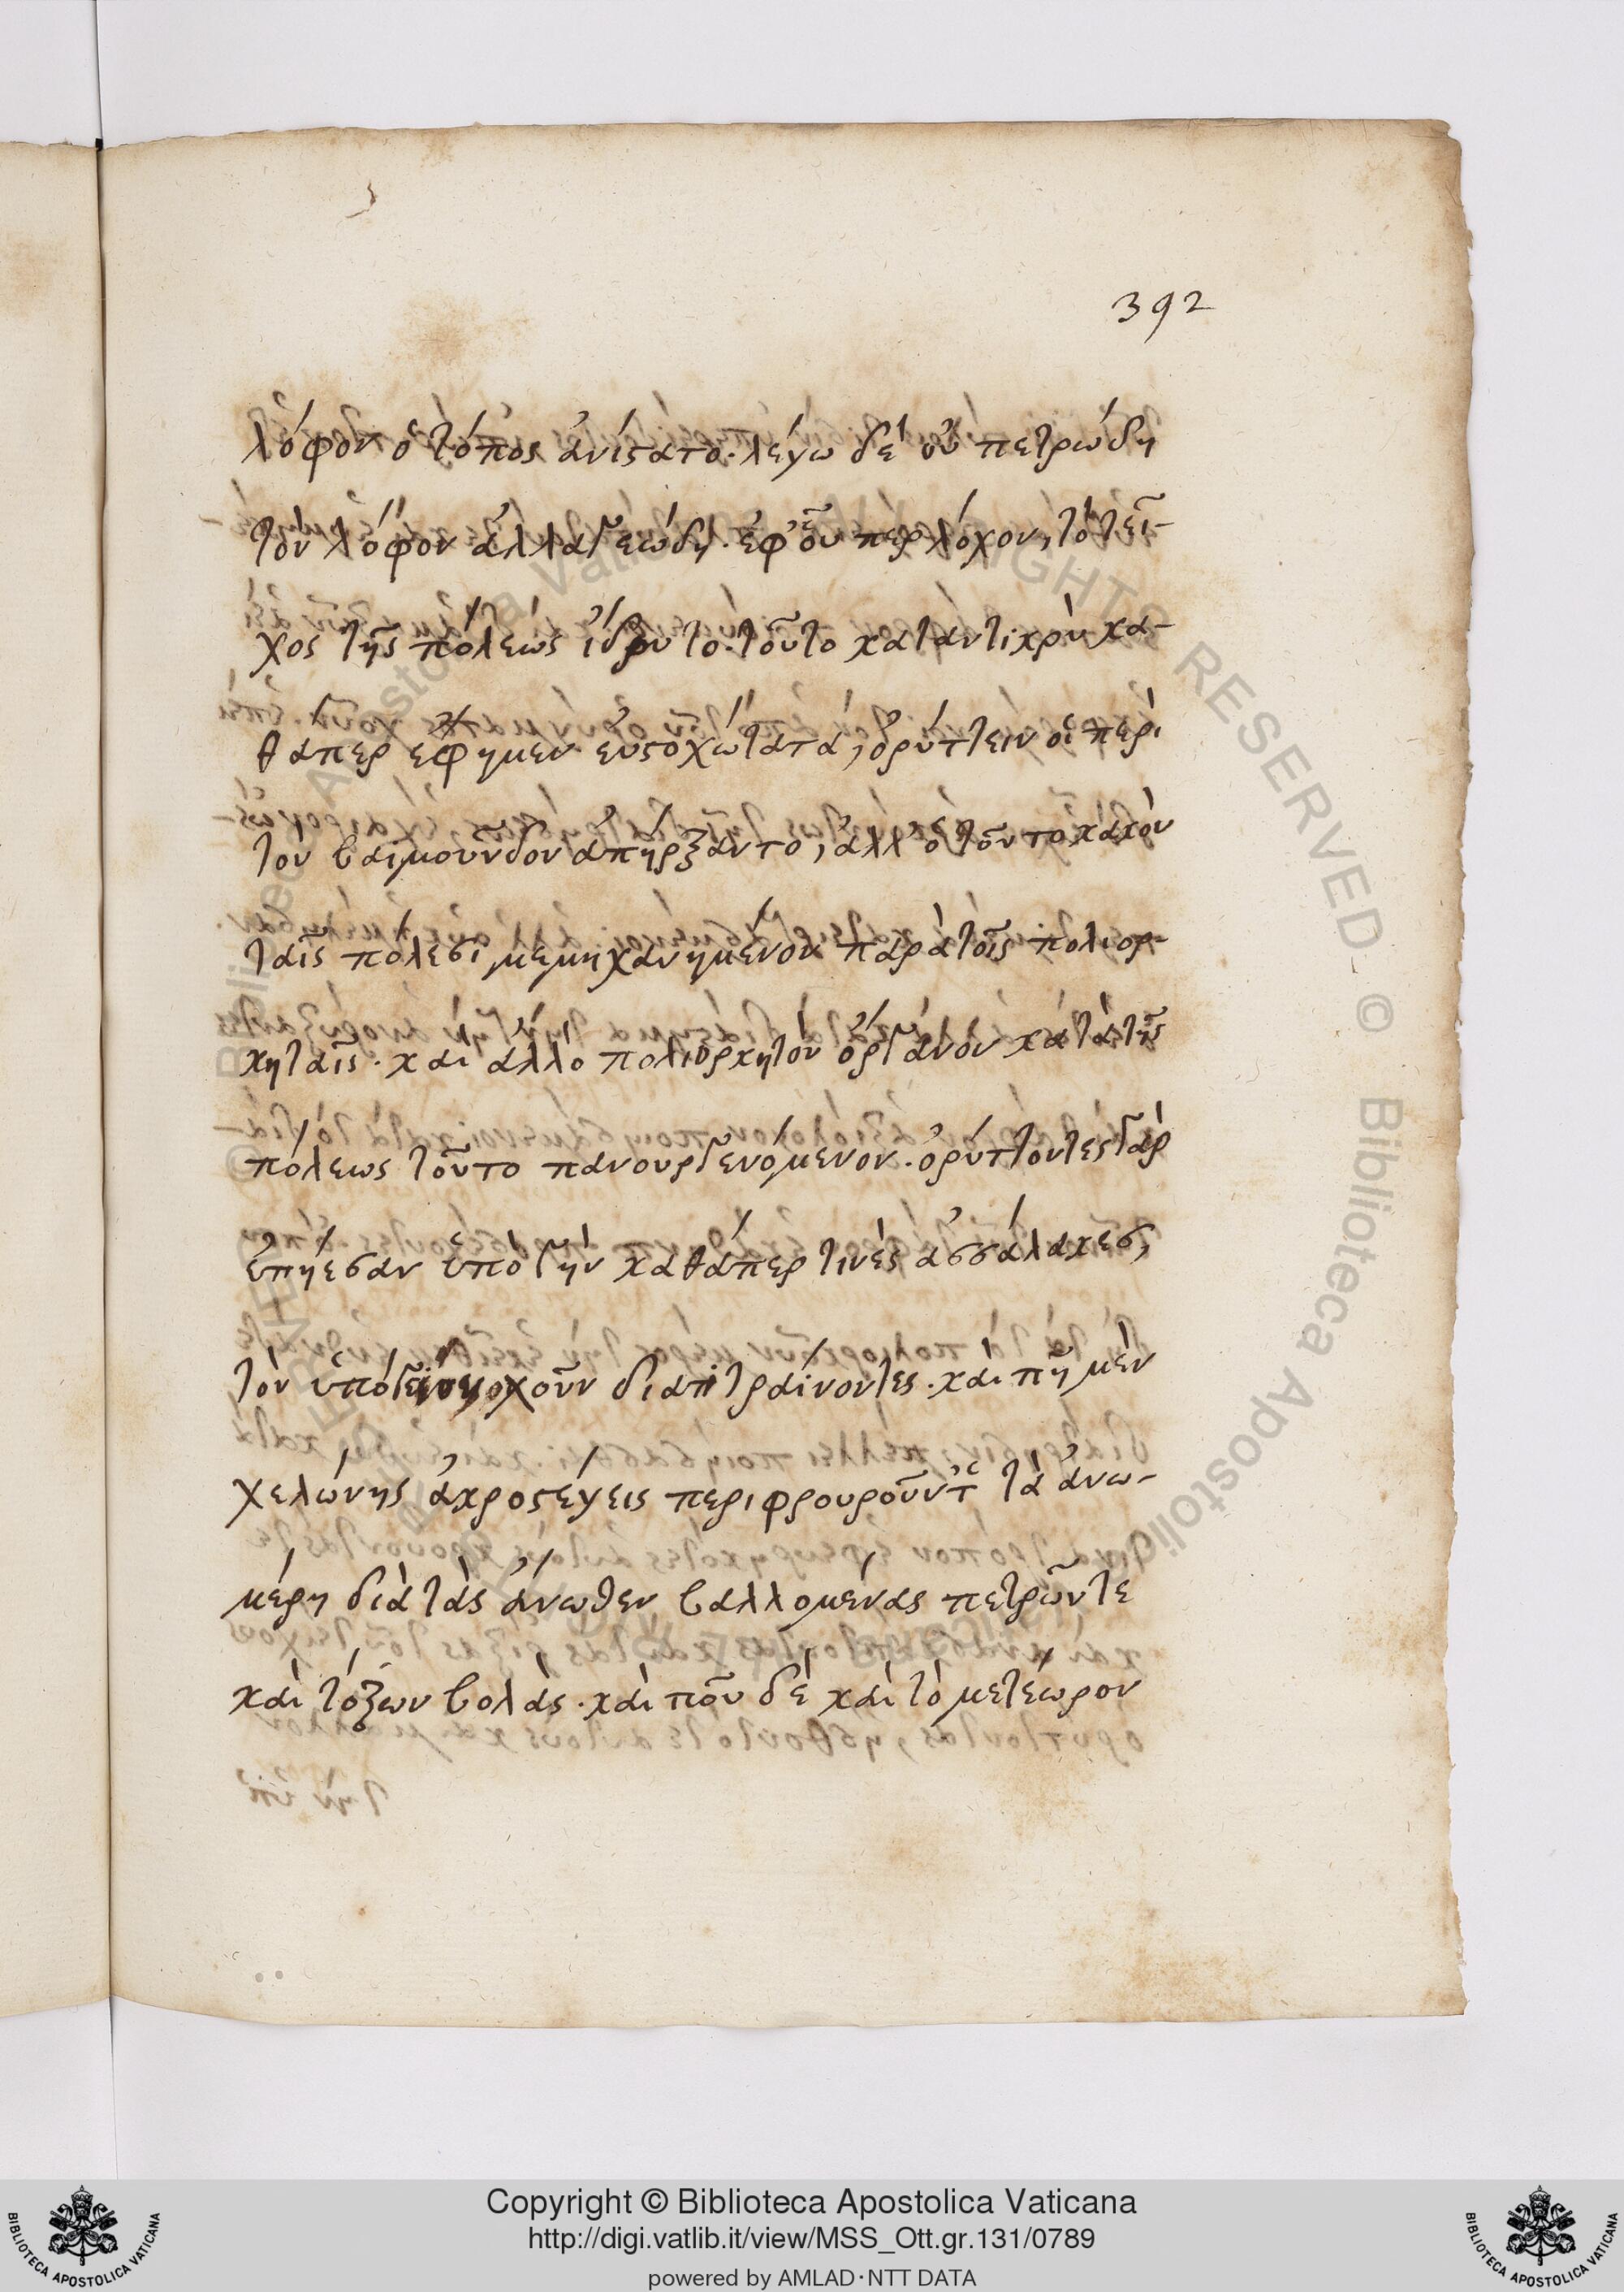 392
λόφον ὁ τόπος ἀνίστατο. λέγω δὲ οὐ πετρώδη
τὸν λόφον ἀλλὰ γεώδη. ἐφ' οὗ περ λόχον, τὸ τεῖ-
χος τῆς πόλεως ἵδρυτο. τοῦτο καταντικρὺ κα-
θάπερ ἔφημεν εὐστοχώτατα, ὀρύττειν οἱ περὶ
τὸν βαϊμοῦνδον ἀπήρξαντο, ἀλλ' ὁ τοῦτο κακὸν
ταῖς πόλεσι μεμηχανημένον παρὰ τοῖς πολιορ-
κηταῖς. καὶ ἄλλο πολιορκητὸν ὄργανον κατὰ τῆς
πόλεως τοῦτο πανουργενόμενον. ὀρύττοντες γὰρ
ὑπῄεσαν ὑπὸ γῆν καθάπερ τινὲς ἀσσάλακες,
τὸν ὑπόγειον χοῦν διατιτραίνοντες. καὶ πῆ μὲν
χελώνης ἀκροστέγεις περιφρουροῦντ τὰ ἄνω-
μέρη διὰ τὰς ἄνωθεν βαλλομένας πετρῶν τε
καὶ τόξων βολάς. καὶ ποῦ δὲ καὶ τὸ μετέωρον
Copyright © Biblioteca Apostolica Vaticana
http://digi.vatlib.it/view/MSS_Ott.gr.131/0789
powered by AMLAD·NTT DATA
BIBLIOTECA APOSTOLICA VATICANA
BIBLIOTECA APOSTOLICA VATICANA